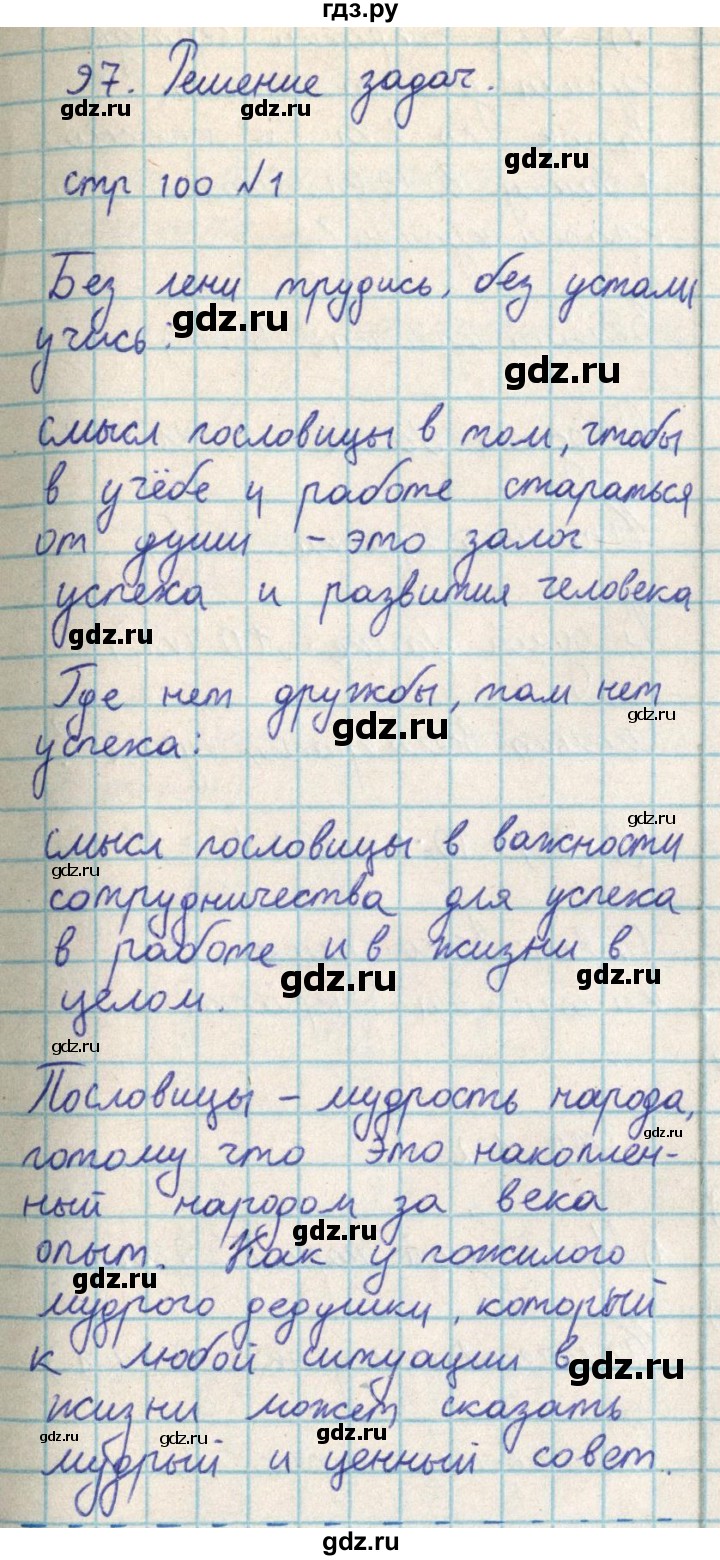 гдз.ру
97. Решение задач.
gdz.ru gdz.ru
gdz.ru
стр 100 №1
Без лени трудись, без устали
gdz.ru
учись:
gdz.ru
смысл пословицы в том, чтобы
в учёбе и работе стараться
от души - это залог
успеха и развития человека
gdz.ru
Где нет дружбы, там нет
gdz.ru gdz.ru
успеха:
gdz.ru
смысл пословицы в важности
gdz.ru
сотрудничества для успеха
в работе и в жизни в
gdz.ru gdz.ru
целом.
gdz.ru
Пословицы - мудрость народа,
gdz.ru
потому что это накоплен-
ный народом за века
gdz.ru
опыт. Как у пожилого
gdz.ru
мудрого дедушки, который
к любой ситуации в
gdz.ru
жизни может сказать
gdz.ru gdz.ru gdz.ru
мудрый и ценный совет.
gdz.ru